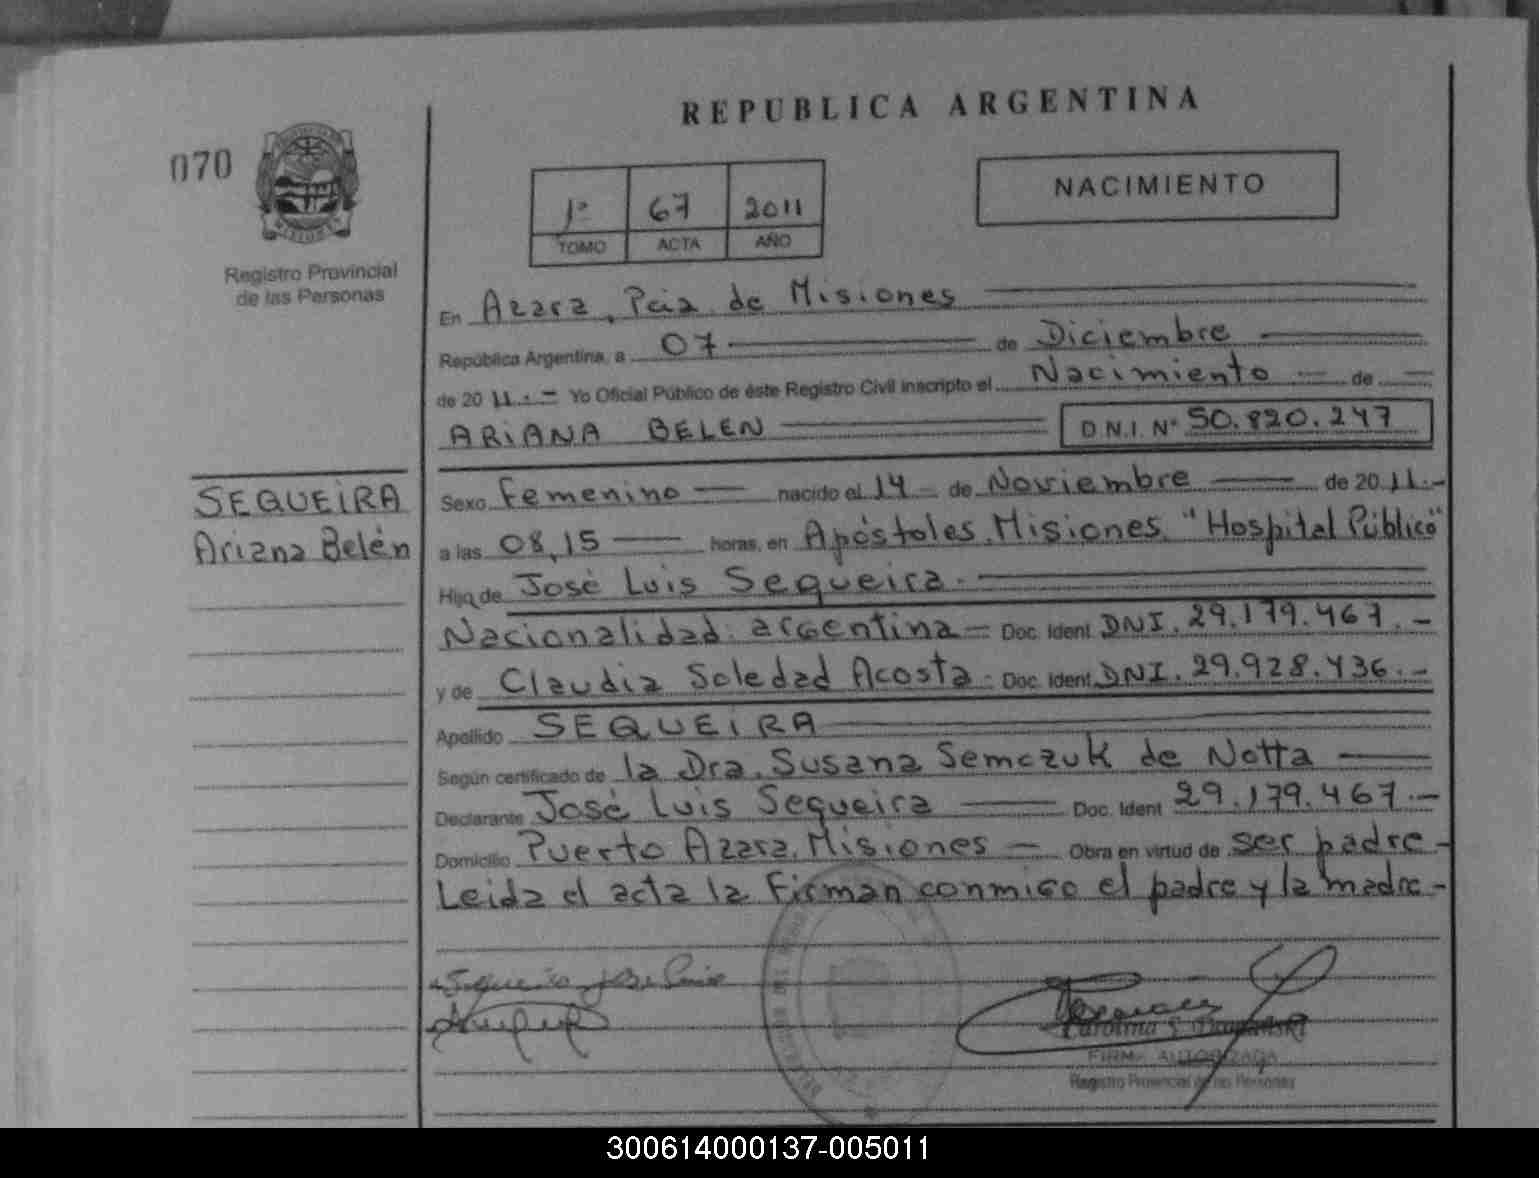 REPUBLICA ARGENTINA
070
NACIMIENTO
1º 67 2011
TOMO ACTA AÑO
Registro Provincial
de las Personas
En Azara, Pcia de Misiones
República Argentina, a 07 de Diciembre
de 2011.- Yo Oficial Público de éste Registro Civil inscripto el Nacimiento de
ARIANA BELEN D.N.I. Nº 50.820.247
SEQUEIRA
Ariana Belén
Sexo Femenino nacido el 14 de Noviembre de 2011.-
a las 08,15 horas, en Apóstoles, Misiones "Hospital Público"
Hija de José Luis Sequeira.
Nacionalidad: argentina Doc. Ident DNI. 29.179.467.-
y de Claudia Soledad Acosta Doc. Ident. DNI. 29.928.436.-
Apellido SEQUEIRA
Según certificado de la Dra. Susana Semczuk de Notta
Declarante José Luis Sequeira Doc. Ident 29.179.467.-
Domicilio Puerto Azara, Misiones Obra en virtud de ser padre-
Leida el acta la firman conmigo el padre y la madre-
Sequeira Jose Luis
FIRMA AUTORIZADA
Registro Provincial de las Personas
300614000137-005011